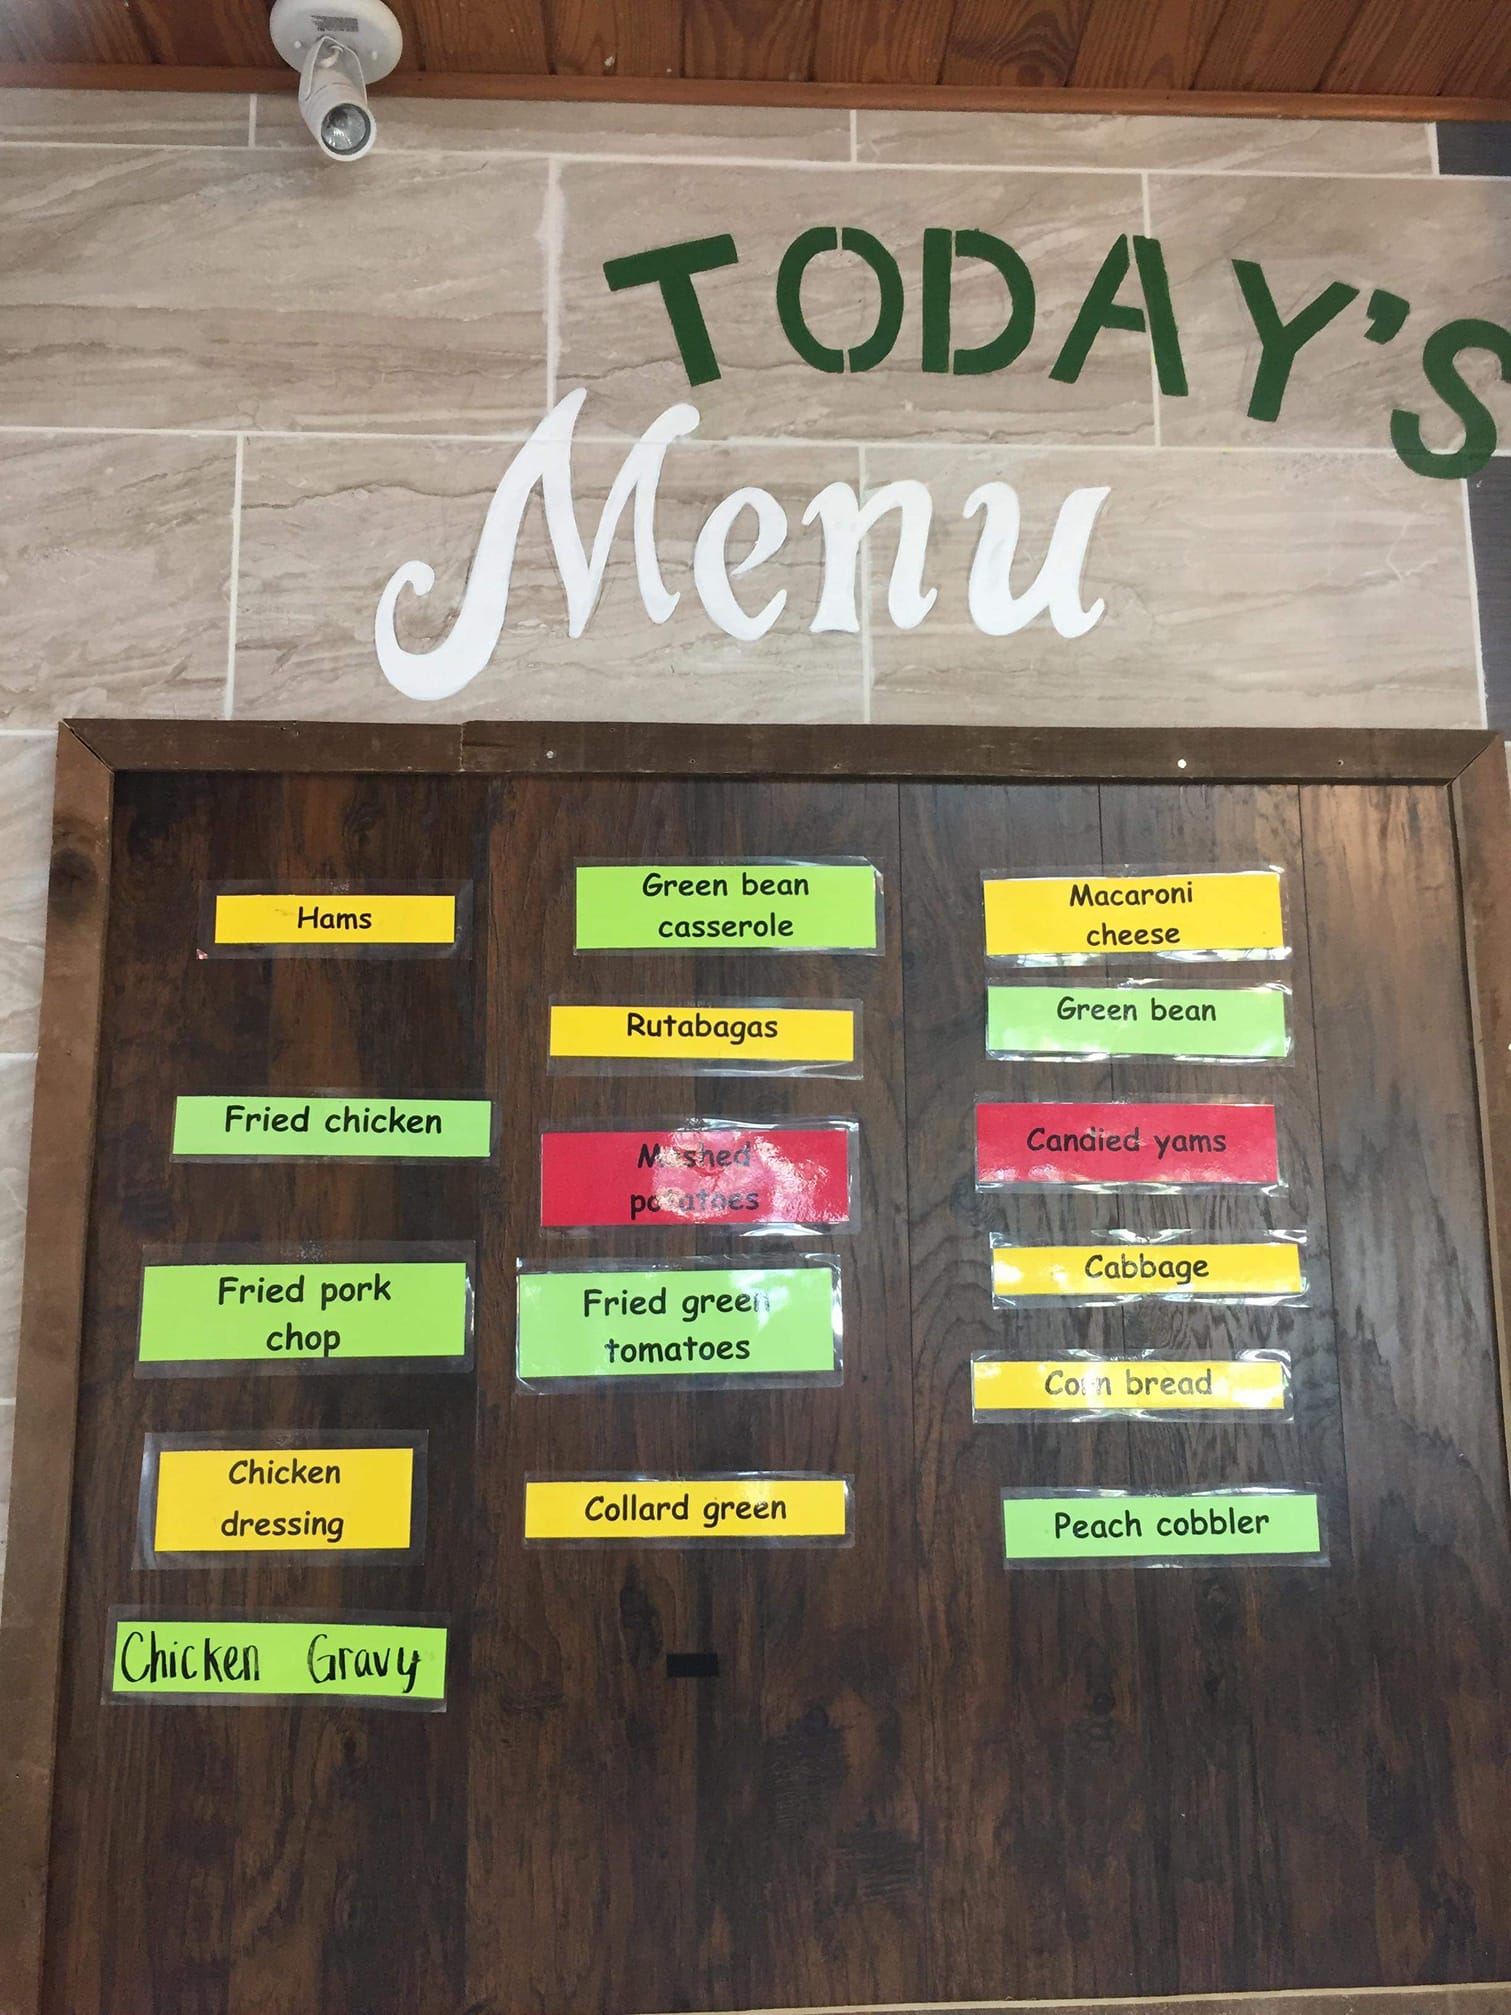 TODAY'S
Menu
Hams
Fried chicken
Fried pork
chop
Chicken
dressing
Chicken Gravy
Green bean
casserole
Rutabagas
Mashed
potatoes
Fried green
tomatoes
Collard green
Macaroni
cheese
Green bean
Candied yams
Cabbage
Corn bread
Peach cobbler